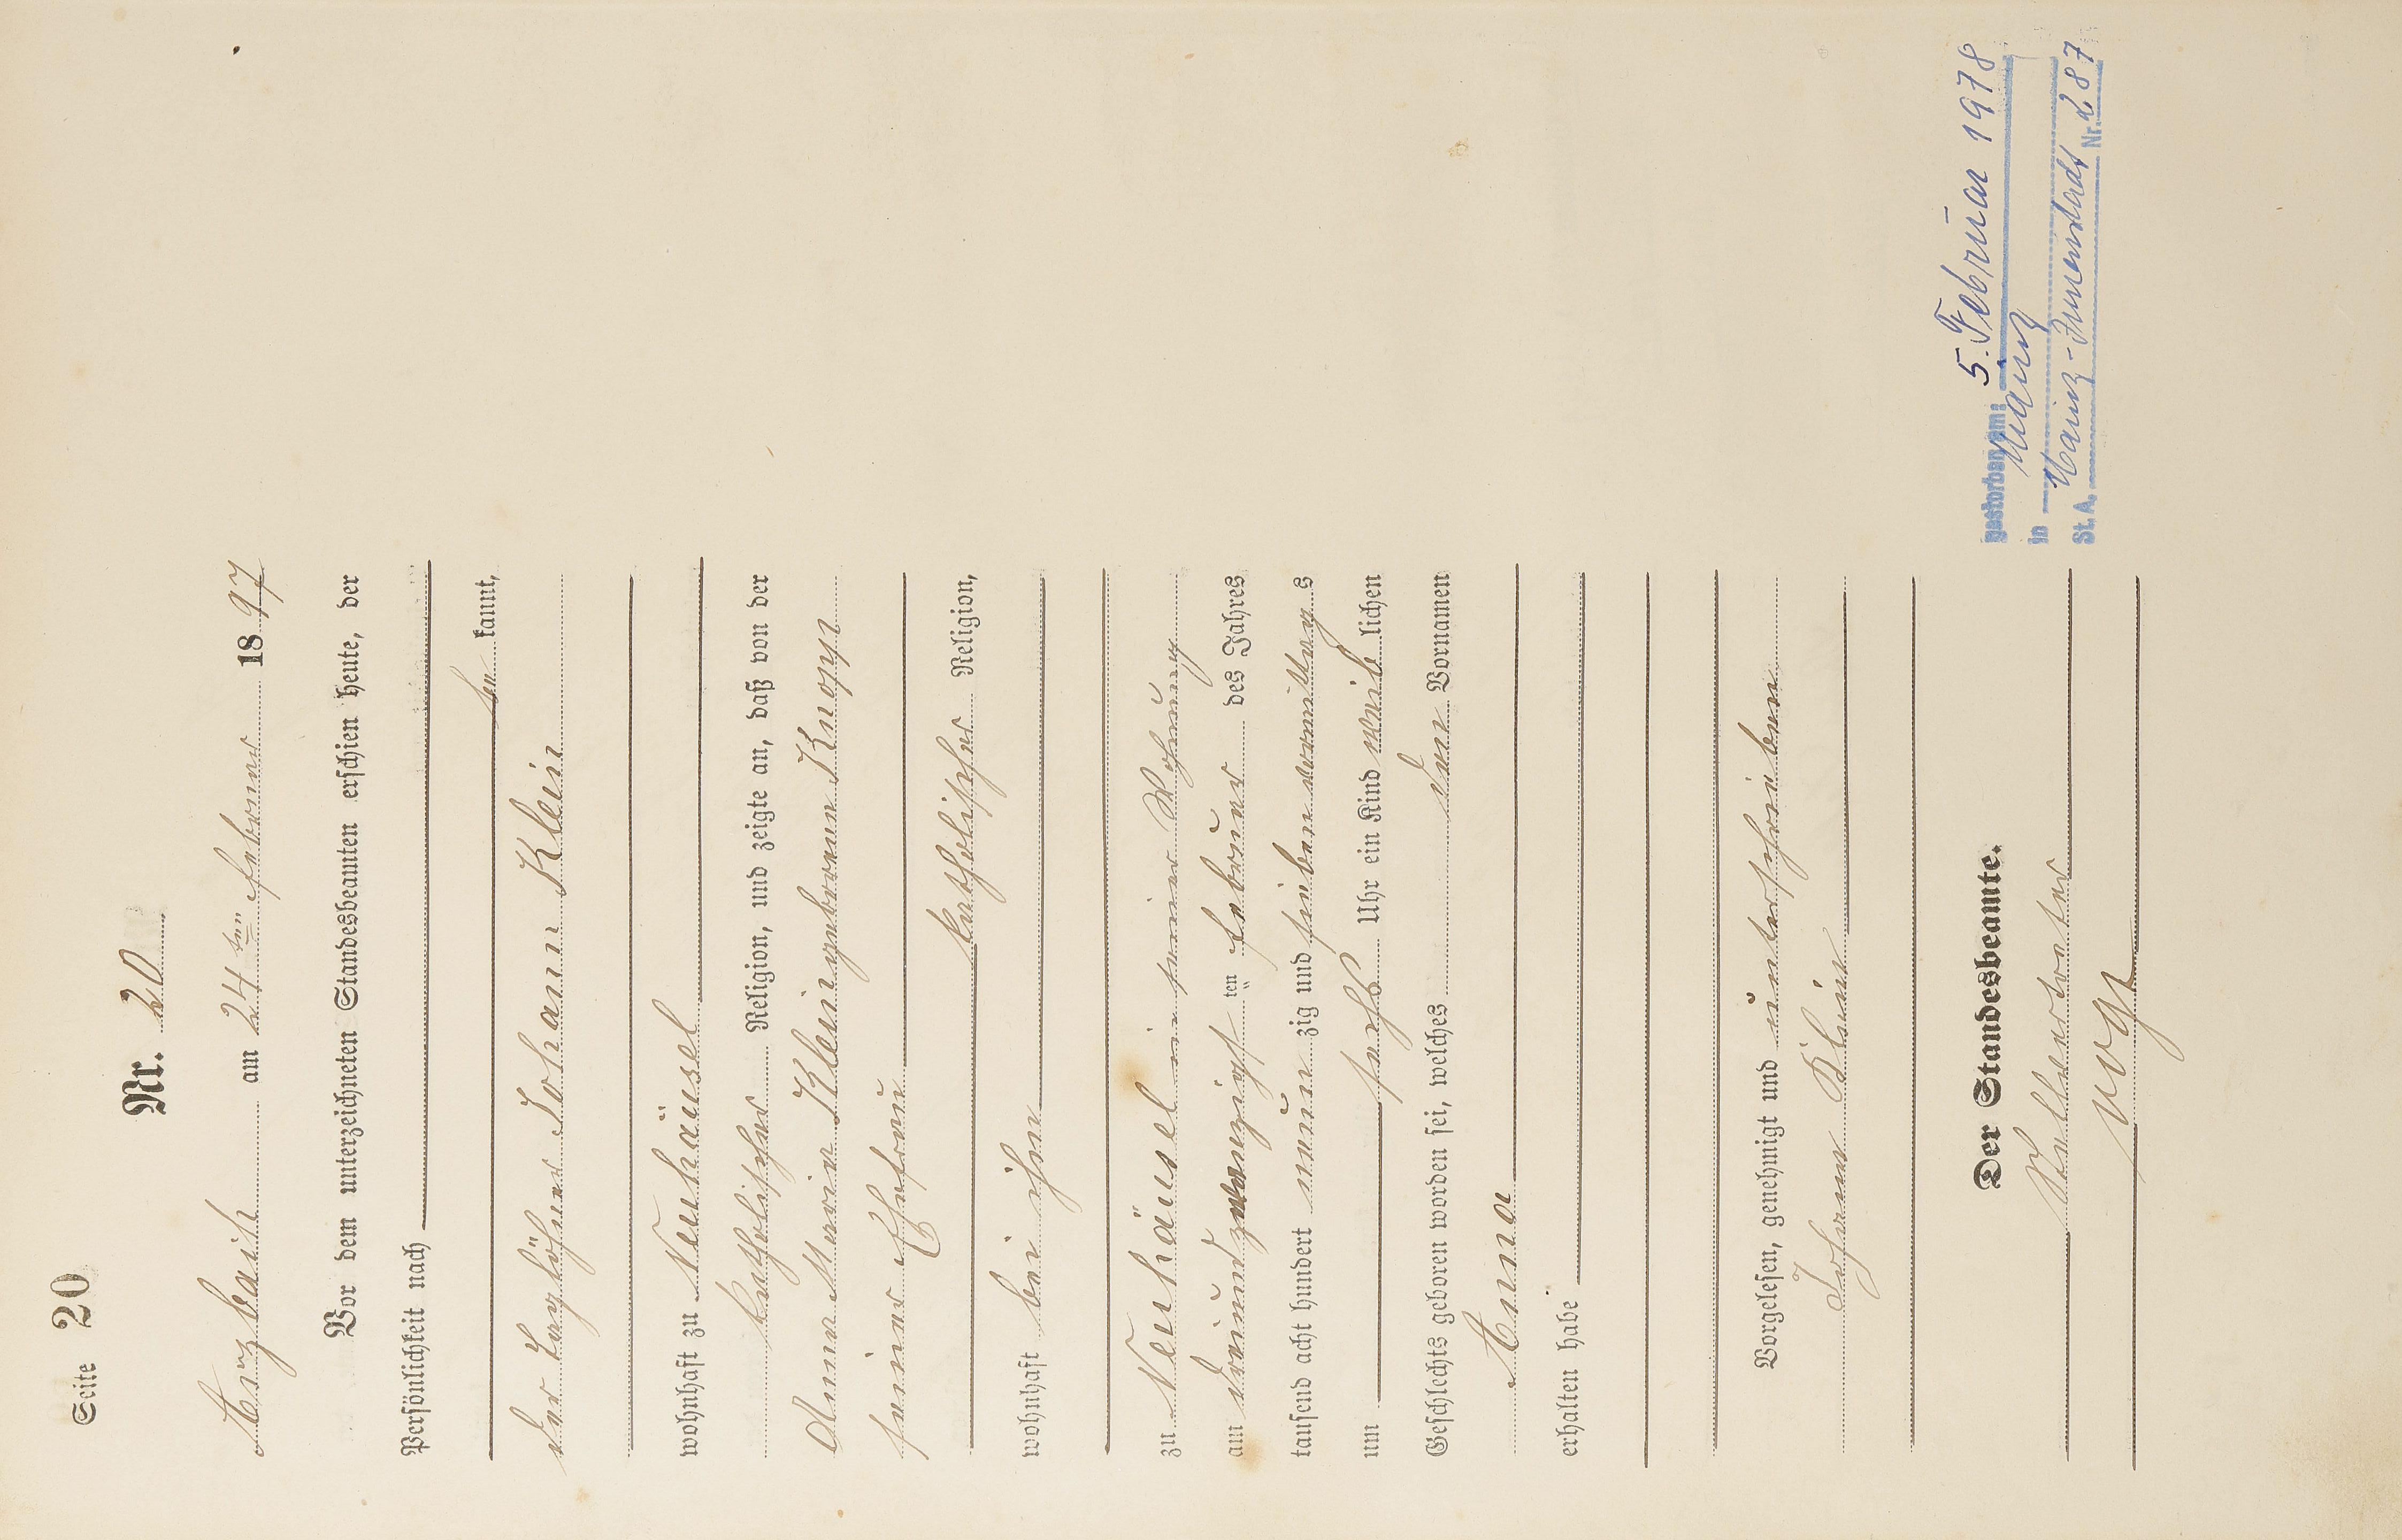 Seite 20
Nr. 20
Arzbach am 24ten Februar 1897
Vor dem unterzeichneten Standesbeamten erschien heute, der
Persönlichkeit nach
bekannt,
der Taglöhner Johann Klein
wohnhaft zu Neuhäusel
katholischer Religion, und zeigte an, daß von der
Anna Maria Klein geborenen Knopp
seiner Ehefrau
katholischer Religion,
wohnhaft bei ihm
zu Neuhäusel in seiner Wohnung
am dreiundzwanzigsten Februar des Jahres
tausend acht hundert neunzig und sieben vormittags
um sechs Uhr ein Kind weiblichen
Geschlechts geboren worden sei, welches den Vornamen
Anna
erhalten habe
Vorgelesen, genehmigt und unterschrieben
Johann Klein
Der Standesbeamte.
Stellvertreter
Vogt
gestorben am: 5. Februar 1978
in Mainz
St. A. Mainz-Innenstadt Nr. 287